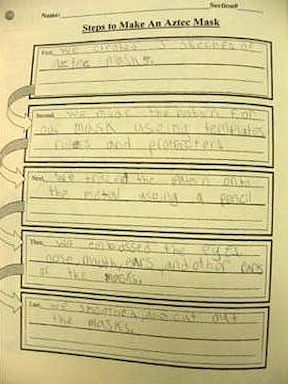 Name: Section#
Steps to Make An Aztec Mask
First, we created 3 sketches of
aztec masks.
Second, we made the pattern for
our mask useing templates
rulers and protracters
Next, we traced the pattern onto
the metal useing a pencil
Then, we embossed the eyes
nose mouth, ears, and other parts
of the masks.
Last, we and cut out
the masks.